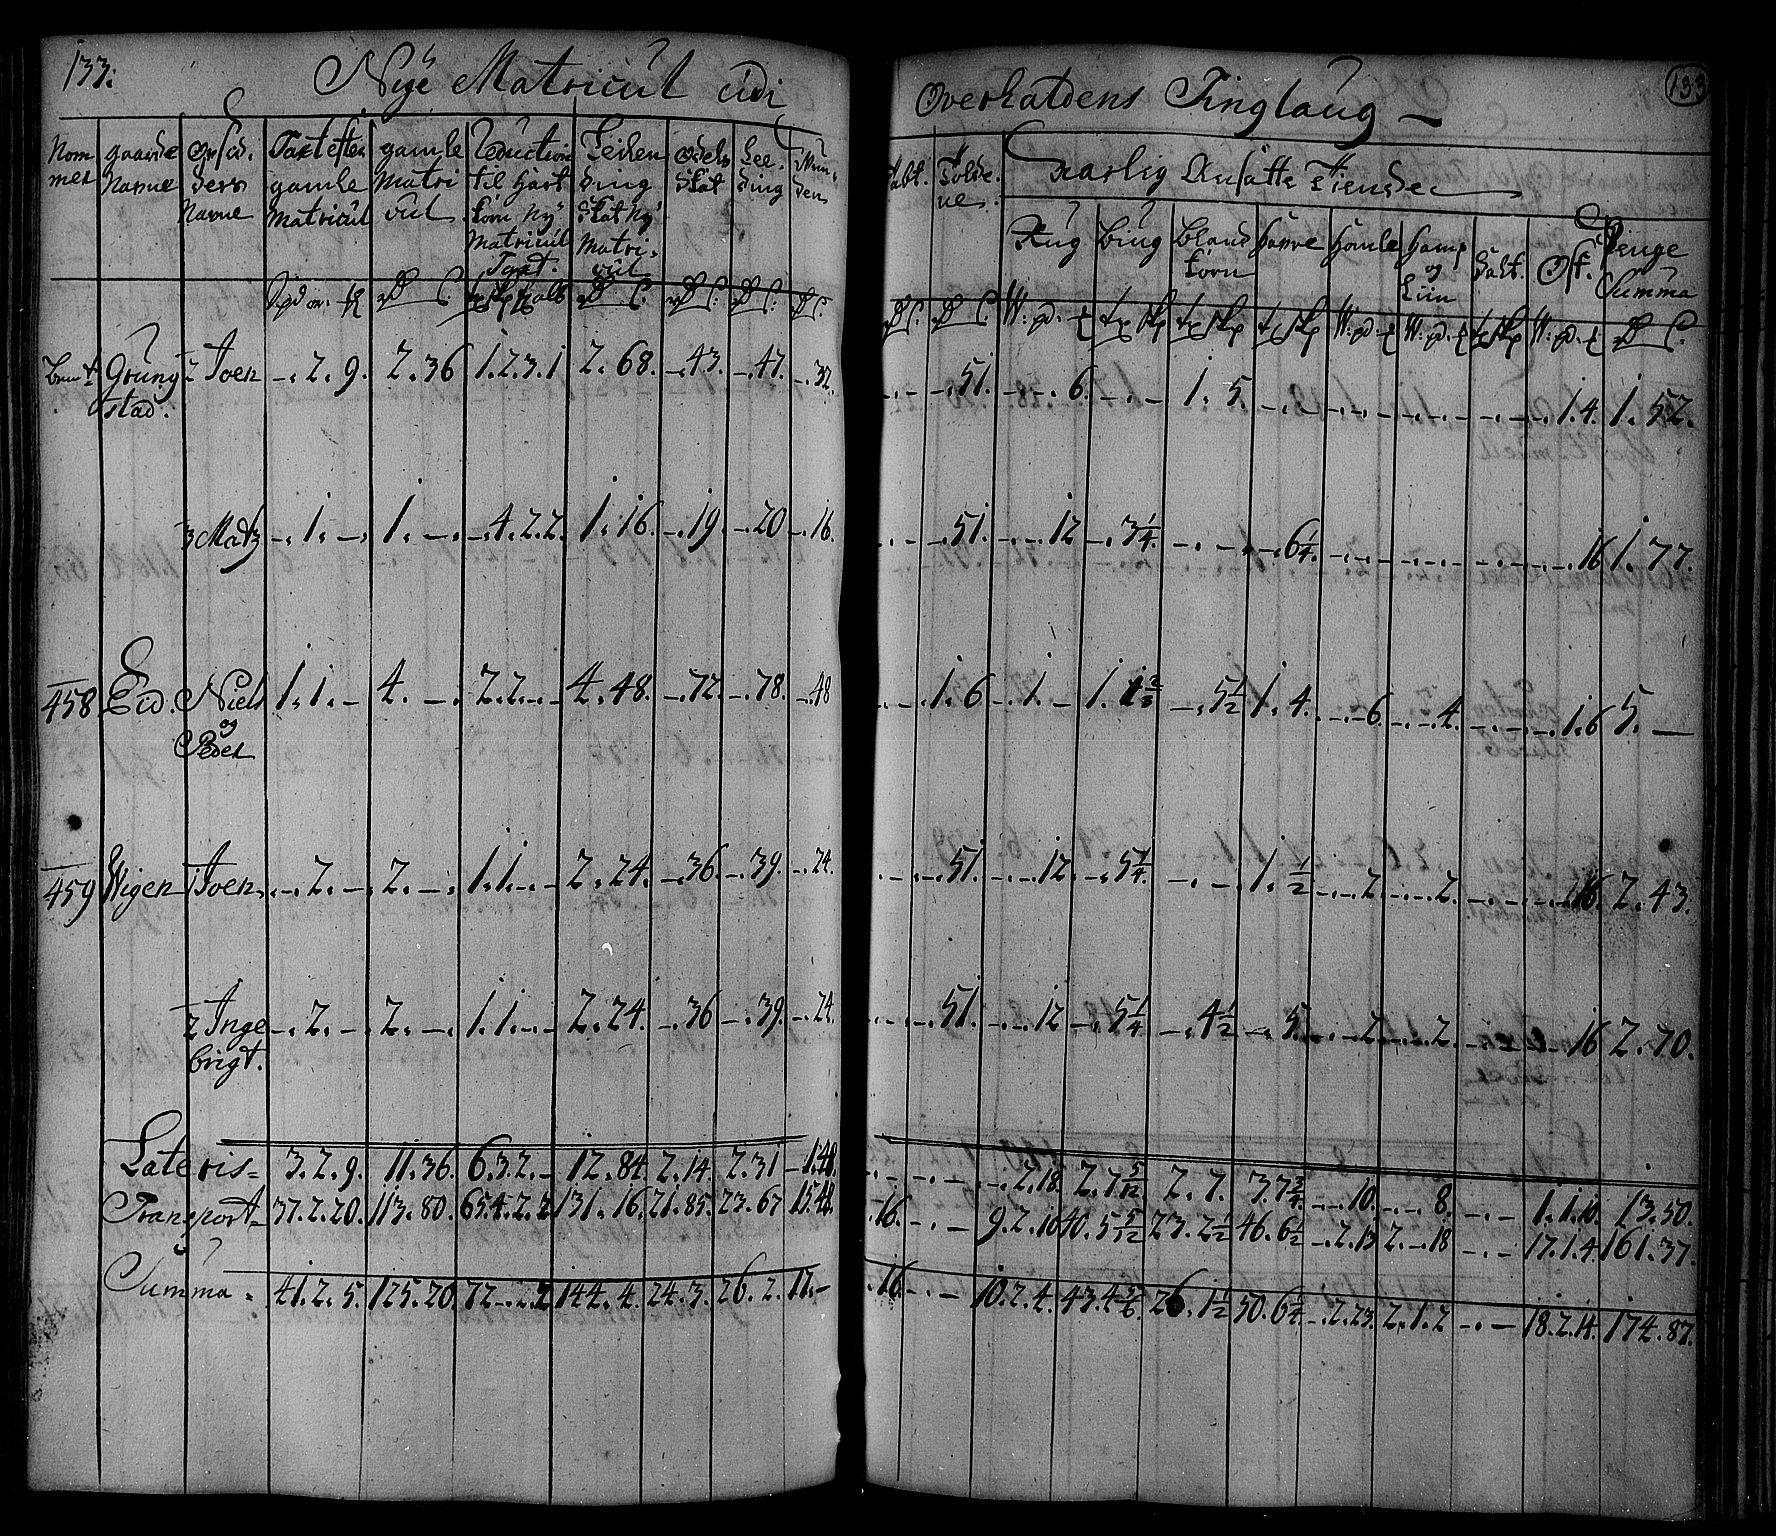 133.
Nÿe Matricul udi
Nom
mer
gaarde
Navne
Opsid.
ders
Navne
Taxt efter
gamle
Matricul
gamle
Matri
cul
Reduction
til Hart
korn Nÿ
Matricul
Taxt.
Leilen
ding
Skat Nÿ
Matri-
cul
Odels
Skat
Lee-
ding
Grung
stad.
2 Joen -. 2. 9. 2. 36 1. 2. 3. 1 2. 68. -. 43. -. 47. -. 32.
3 Matz -. 1. -. 1. -. -. 4. 2. 2. 1. 16. -. 19. -. 20 -. 16.
458 Eid. Niels 1. 1. - 4. -. 2. 2. -. - 4. 48. -. 72. -. 78. -. 48
og
Peder
459 Wigen 1 Joen -. 2. -. 2. -. 1. 1. -. - 2. 24. -. 36 -. 39. -. 24.
2 Inge -. 2. -. 2. -. 1. 1. -. - 2. 24. -. 36 -. 39. -. 24.
brigt.
Lateris = 3. 2. 9. 11. 36. 6. 3. 2. - 12. 84. 2. 14. 2. 31 - 1. 48.
Transport - 37. 2. 20. 113. 80. 65. 4. 2. 2 131. 16. 21. 85. 23. 67 15. 48.
Summa. 41. 2. 5. 125. 20. 72 -. -. 2 144. 4. 24. 3. 26. 2. 17. -
133
Overhaldens Tinglaug -
Tolde.
ne.
aarlig Ansatte Tiender
Rug
Biug
Bland
korn
Havre
Homle
Hamp
og
Liin
Salt.
Ost.
Penge
Summa
-. 51. -. -. 6. -. -. - 1. 5. -. - -. -. - -. -. - -. - -. 1. 4. 1. 52.
-. 51. -. -. 12 -. 3 1/4. -. - -. 6 1/4. -. -. - -. -. - -. - -. -. 16 1. 77.
1. 6 -. 1. - 1. 1 2/3 -. 5 1/2 1. 4. -. -. 6. -. -. 4. -. - -. 1. 6 5. -
-. 51. -. -. 12. -. 5 1/4. -. - 1. 1/2 -. -. 2 -. -. 2. -. - -. -. 16. 2. 43.
-. 51. -. -. 12 -. 5 1/4 -. 4 1/2 -. 5. -. -. 2. -. -. 2. -. - -. -. 16 2. 70.
-. - -. 2. 18. 2. 7 5/12 2. 7. 3. 7 3/4 -. -. 10. -. -. 8. -. - 1. 1. 10. 13. 50.
. 16. -. - 9. 2. 10 40. 5 5/12 23. 2 1/2 46. 6 1/2 -. 2. 13 2. -. 18 -. - 17. 1. 4 161. 37.
. 16. -. - 10. 2. 4. 43. 4 5/6. 26. 1 1/2 50. 6 1/4 -. 2. 23. 2. 1. 2 -. - 18. 2. 14. 174. 87.